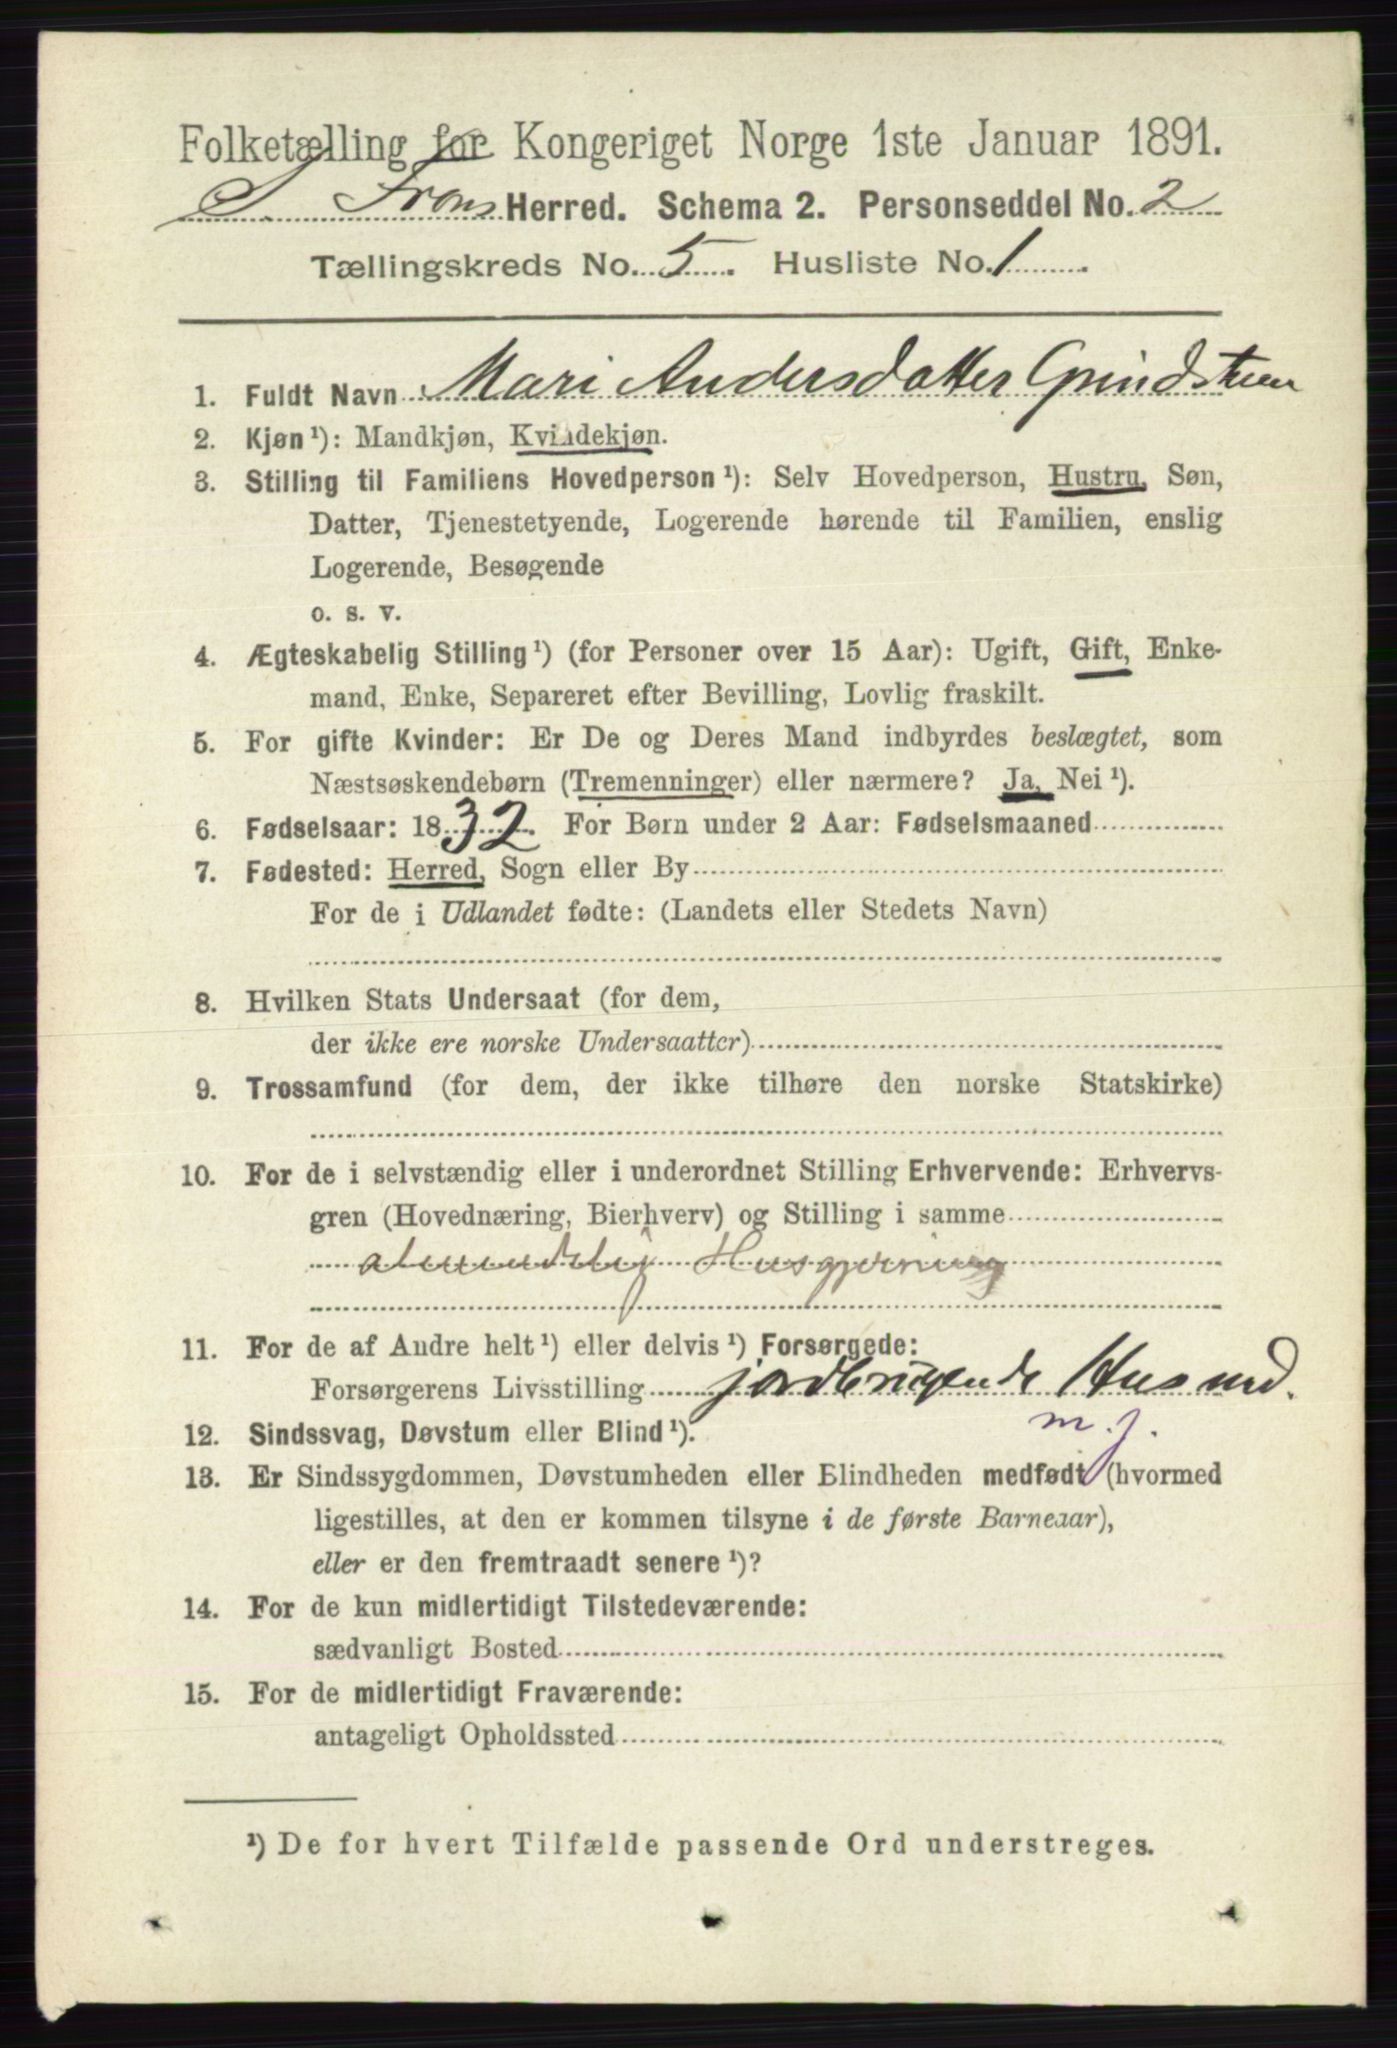 Folketælling for Kongeriget Norge 1ste Januar 1891.
S. Frons Herred. Schema 2. Personseddel No. 2
Tællingskreds No. 5. Husliste No. 1
1. Fuldt Navn Mari Andersdatter Grindstuen
2. Kjøn ¹): Mandkjøn, Kvindekjøn.
3. Stilling til Familiens Hovedperson ¹): Selv Hovedperson, Hustru, Søn,
Datter, Tjenestetyende, Logerende hørende til Familien, enslig
Logerende, Besøgende
o. s. v.
4. Ægteskabelig Stilling ¹) (for Personer over 15 Aar): Ugift, Gift, Enke-
mand, Enke, Separeret efter Bevilling, Lovlig fraskilt.
5. For gifte Kvinder: Er De og Deres Mand indbyrdes beslægtet, som
Næstsøskendebørn (Tremenninger) eller nærmere? Ja, Nei ¹).
6. Fødselsaar: 1832. For Børn under 2 Aar: Fødselsmaaned
7. Fødested: Herred, Sogn eller By
For de i Udlandet fødte: (Landets eller Stedets Navn)
8. Hvilken Stats Undersaat (for dem,
der ikke ere norske Undersaatter)
9. Trossamfund (for dem, der ikke tilhøre den norske Statskirke)
10. For de i selvstændig eller i underordnet Stilling Erhvervende: Erhvervs-
gren (Hovednæring, Bierhverv) og Stilling i samme
almindelig Husgjerning
11. For de af Andre helt ¹) eller delvis ¹) Forsørgede:
Forsørgerens Livsstilling jordbrugende Husmd.
m. j.
12. Sindssvag, Døvstum eller Blind ¹).
13. Er Sindssygdommen, Døvstumheden eller Blindheden medfødt (hvormed
ligestilles, at den er kommen tilsyne i de første Barneaar),
eller er den fremtraadt senere ¹)?
14. For de kun midlertidigt Tilstedeværende:
sædvanligt Bosted
15. For de midlertidigt Fraværende:
antageligt Opholdssted
¹) De for hvert Tilfælde passende Ord understreges.